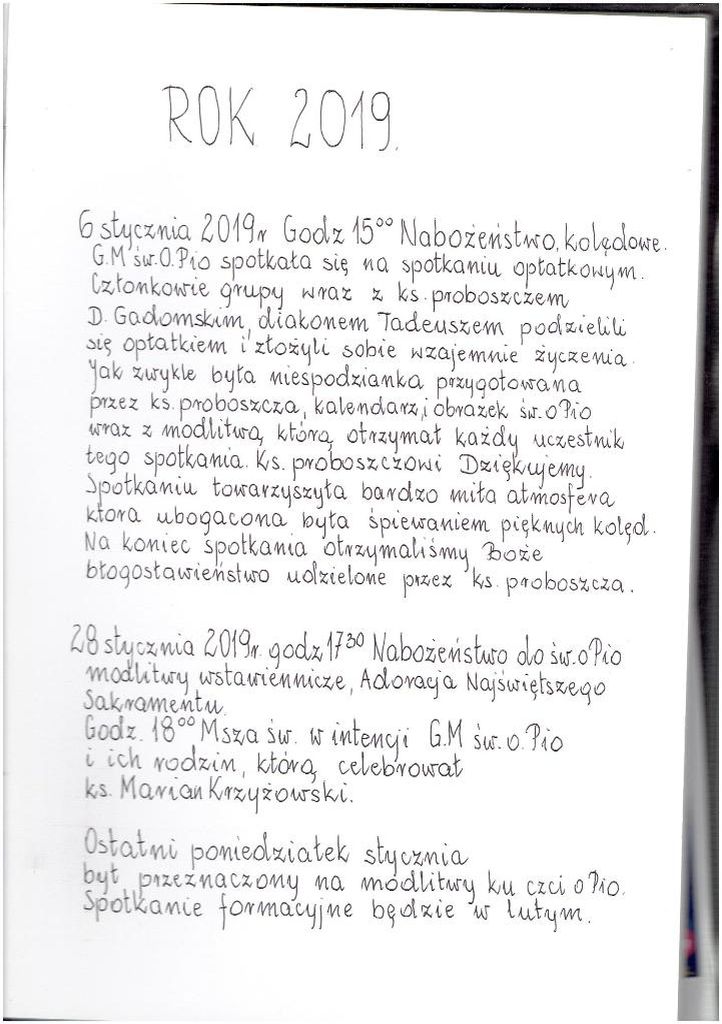 ROK 2019.
6 stycznia 2019r Godz 15⁰⁰ Nabożeństwo, kolędowe.
G.M św.O.Pio spotkała się na spotkaniu opłatkowym.
Członkowie grupy wraz z ks. proboszczem
D. Gadomskim, diakonem Tadeuszem podzielili
się opłatkiem i złożyli sobie wzajemnie życzenia.
Jak zwykle była niespodzianka przygotowana
przez ks. proboszcza, kalendarz i obrazek św. o Pio
wraz z modlitwą, którą otrzymał każdy uczestnik
tego spotkania. Ks. proboszczowi Dziękujemy.
Spotkaniu towarzyszyła bardzo miła atmosfera
która ubogacona była śpiewaniem pięknych kolęd.
Na koniec spotkania otrzymaliśmy Boże
błogosławieństwo udzielone przez ks. proboszcza.
28 stycznia 2019r. godz 17³⁰ Nabożeństwo do św. o Pio
modlitwy wstawiennicze, Adoracja Najświętszego
Sakramentu.
Godz. 18⁰⁰ Msza św. w intencji G.M św. o. Pio
i ich rodzin, którą celebrował
ks. Marian Krzyżowski.
Ostatni poniedziałek stycznia
był przeznaczony na modlitwy ku czci o Pio.
Spotkanie formacyjne będzie w lutym.